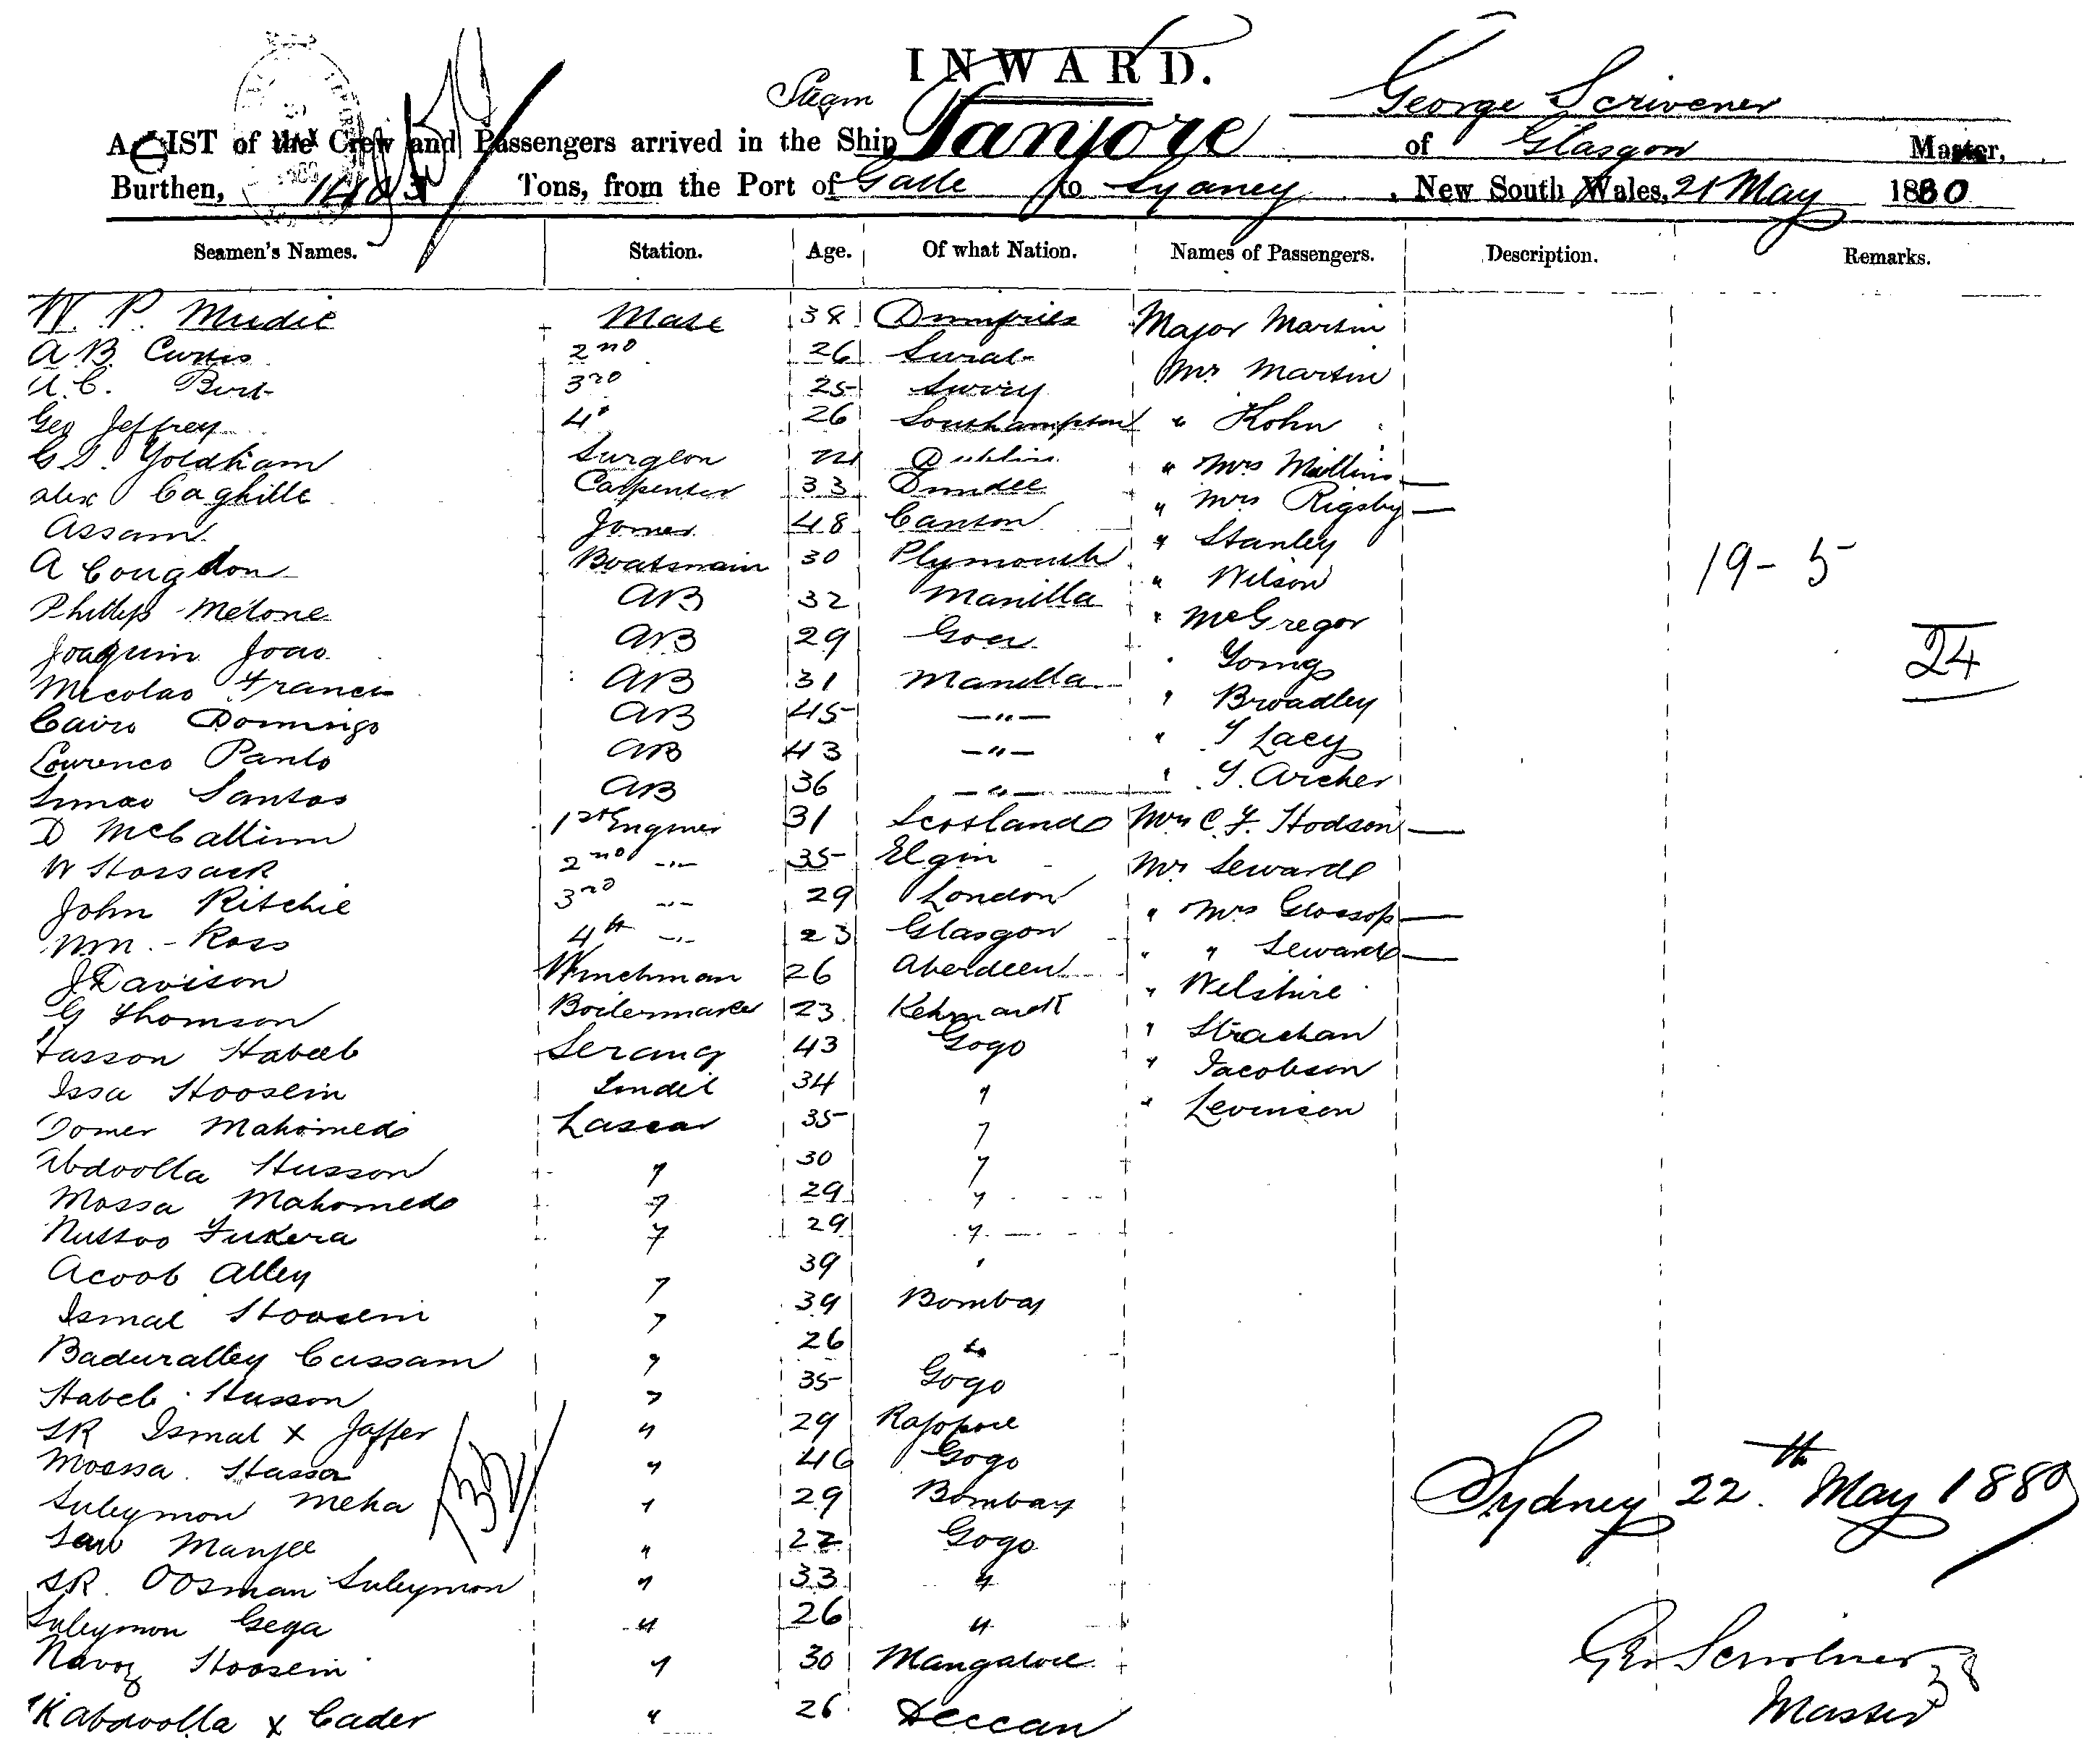 INWARD.
Steam
George Scrivener
A LIST of the Crew and Passengers arrived in the Ship Tanjore of Glasgow Master,
Burthen, Tons, from the Port of Galle to Sydney, New South Wales, 21 May 1880
Seamen's Names. Station. Age. Of what Nation. Names of Passengers. Description. Remarks.
W. P. Mudie Mate 38 Dumfries Major Martin
A B Curtis 2nd 26 Surat Mr Martin
A. C. Burt 3rd 25 Surry
Geo Jeffrey 4" 26 Southampton " Kohn
G S. Yoldham Surgeon Dublin " Mrs Mullins —
Alex Caghille Carpenter 33 Dundee " Mrs Rigsby —
Assam Joiner 48 Canton " Stanley
A Congdon Boatswain 30 Plymouth " Wilson 19 - 5
Phillip Melone AB 32 Manilla " McGregor
Joaquim Joao AB 29 Goa " Young 24
Nicolao Francis AB 31 Manilla " Broadley
Cairo Domingo AB 45 —"— " T Lacy
Lourenco Panlo AB 43 —"— " T. Archer
Simao Santos AB 36 —"—
D McCallum 1st Engineer 31 Scotland Mrs C. F. Hodson —
W Hossack 2nd —"— 35 Elgin Mr Seward
John Ritchie 3rd —"— 29 London " Mrs Glossop —
Wm. Ross 4th —"— 23 Glasgow " " Seward —
J Davison Winchman 26 Aberdeen " Welshire
G Thomson Boilermaker 23 " Strachan
Hasson Habeeb Serang 43 Gogo " Jacobson
Issa Hoosein Tindel 34 " " Levinson
Oomer Mahomed Lascar 35 "
Abdoolla Husson " 30 "
Mossa Mahomed " 29 "
Nuttoo Fukera " 29 "
Acoob Alley " 39 "
Ismal Hoosein " 39 Bombay
Baduralley Cussam " 26 "
Habeb Husson " 35 Gogo
SR Ismal x Jaffer " 29
Moossa Hassa " 46 Gogo
Suleymon Meha " 29 Bombay
Manjee " 22 Gogo
SR. Oosman Suleymon " 33 "
Suleymon Gega " 26 "
Navoz Hoosein " 30 Mangalore
K Abdoolla x Cader " 26 Deccan
Sydney 22th May 1880
Geo Scrivener
Master
38